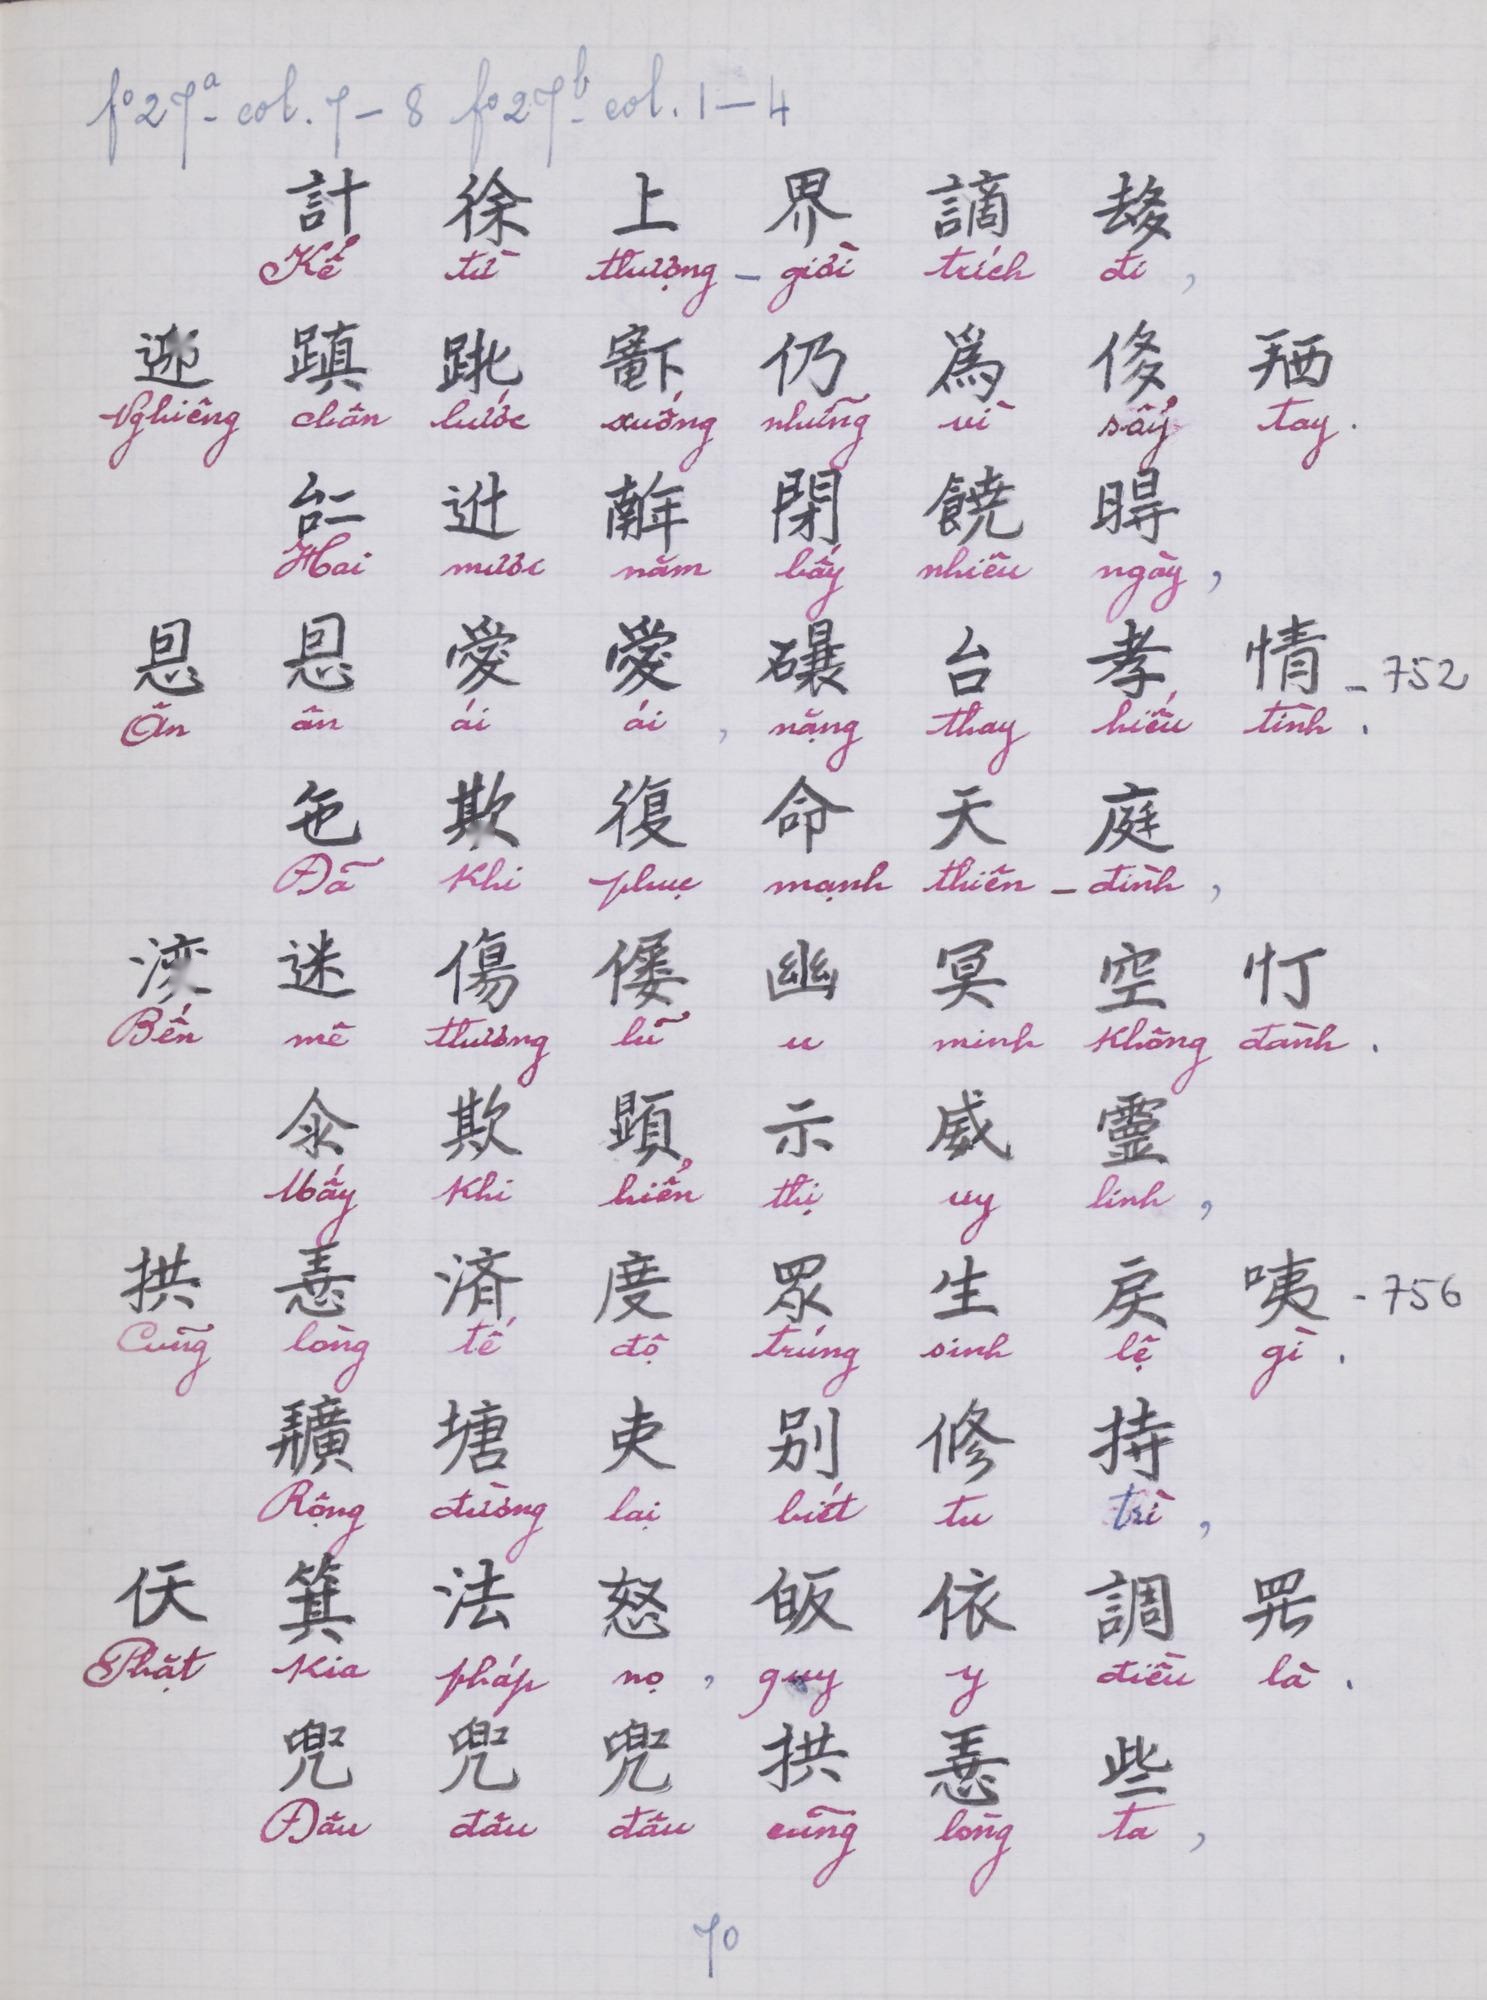 fº27ª- col. 7-8 fº27ᵇ- col. 1-4
計 徐 上 界 謫 𠫾
Kể từ thượng - giới trích đi,
迎 蹎 𨀈 𫴋 仍 爲 㑛 𢬣
Nghiêng chân bước xuống những vì sẩy tay.
𠄩 𨑮 𢆥 閉 饒 㫵
Hai mươi năm bấy nhiêu ngày,
恩 恩 愛 愛 礙 台 孝 情 - 752
Ân ân ái ái, nặng thay hiếu tình.
㐌 欺 復 命 天 庭
Đã khi phục mạnh thiên - đình,
𣷷 迷 傷 𠎪 幽 冥 空 忊
Bến mê thương lũ u minh không đành.
氽 欺 顕 示 威 靈
Mấy khi hiển thị uy linh,
拱 𢚸 済 度 眾 生 戾 咦 - 756
Cũng lòng tế độ trúng sinh lệ gì.
𢌌 塘 吏 别 修 持
Rộng đường lại biết tu trì,
仸 箕 法 怒 皈 依 調 罖
Phật kia pháp nọ, quy y điều là.
兜 兜 兜 拱 𢚸 些
Đâu đâu đâu cũng lòng ta,
70